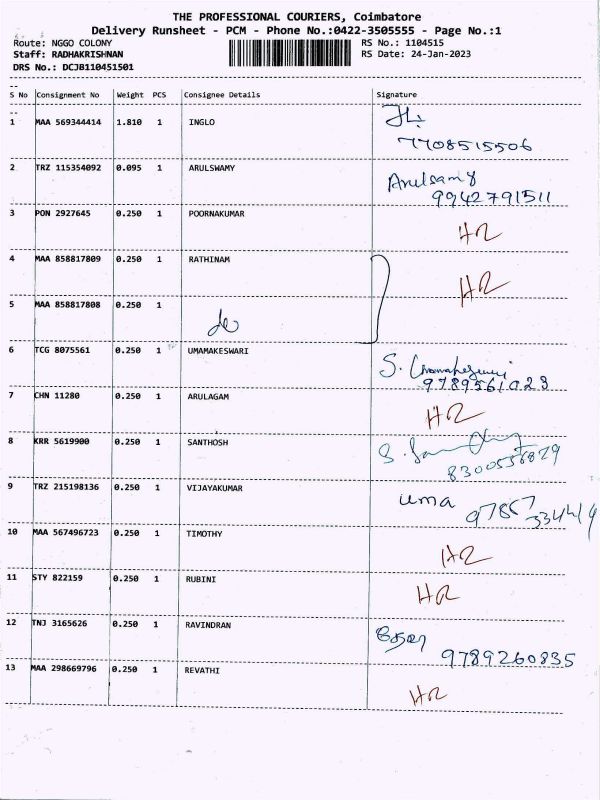 THE PROFESSIONAL COURIERS, Coimbatore
Delivery Runsheet - PCM - Phone No.:0422-3505555 - Page No.:1
Route: NGGO COLONY RS No.: 1104515
Staff: RADHAKRISHNAN RS Date: 24-Jan-2023
DRS No.: DCJB110451501
S No Consignment No Weight PCS Consignee Details Signature
1 MAA 569344414 1.810 1 INGLO
7708515506
2 TRZ 115354092 0.095 1 ARULSWAMY Arulsamy
9942791511
3 PON 2927645 0.250 1 POORNAKUMAR HR
4 MAA 858817809 0.250 1 RATHINAM HR
5 MAA 858817808 0.250 1
do
6 TCG 8075561 0.250 1 UMAMAKESWARI S. Umamakeswari
9789561023
7 CHN 11280 0.250 1 ARULAGAM HR
8 KRR 5619900 0.250 1 SANTHOSH
8300556829
9 TRZ 215198136 0.250 1 VIJAYAKUMAR uma
97857 334414
10 MAA 567496723 0.250 1 TIMOTHY HR
11 STY 822159 0.250 1 RUBINI HR
12 TNJ 3165626 0.250 1 RAVINDRAN
9789260835
13 MAA 298669796 0.250 1 REVATHI HR